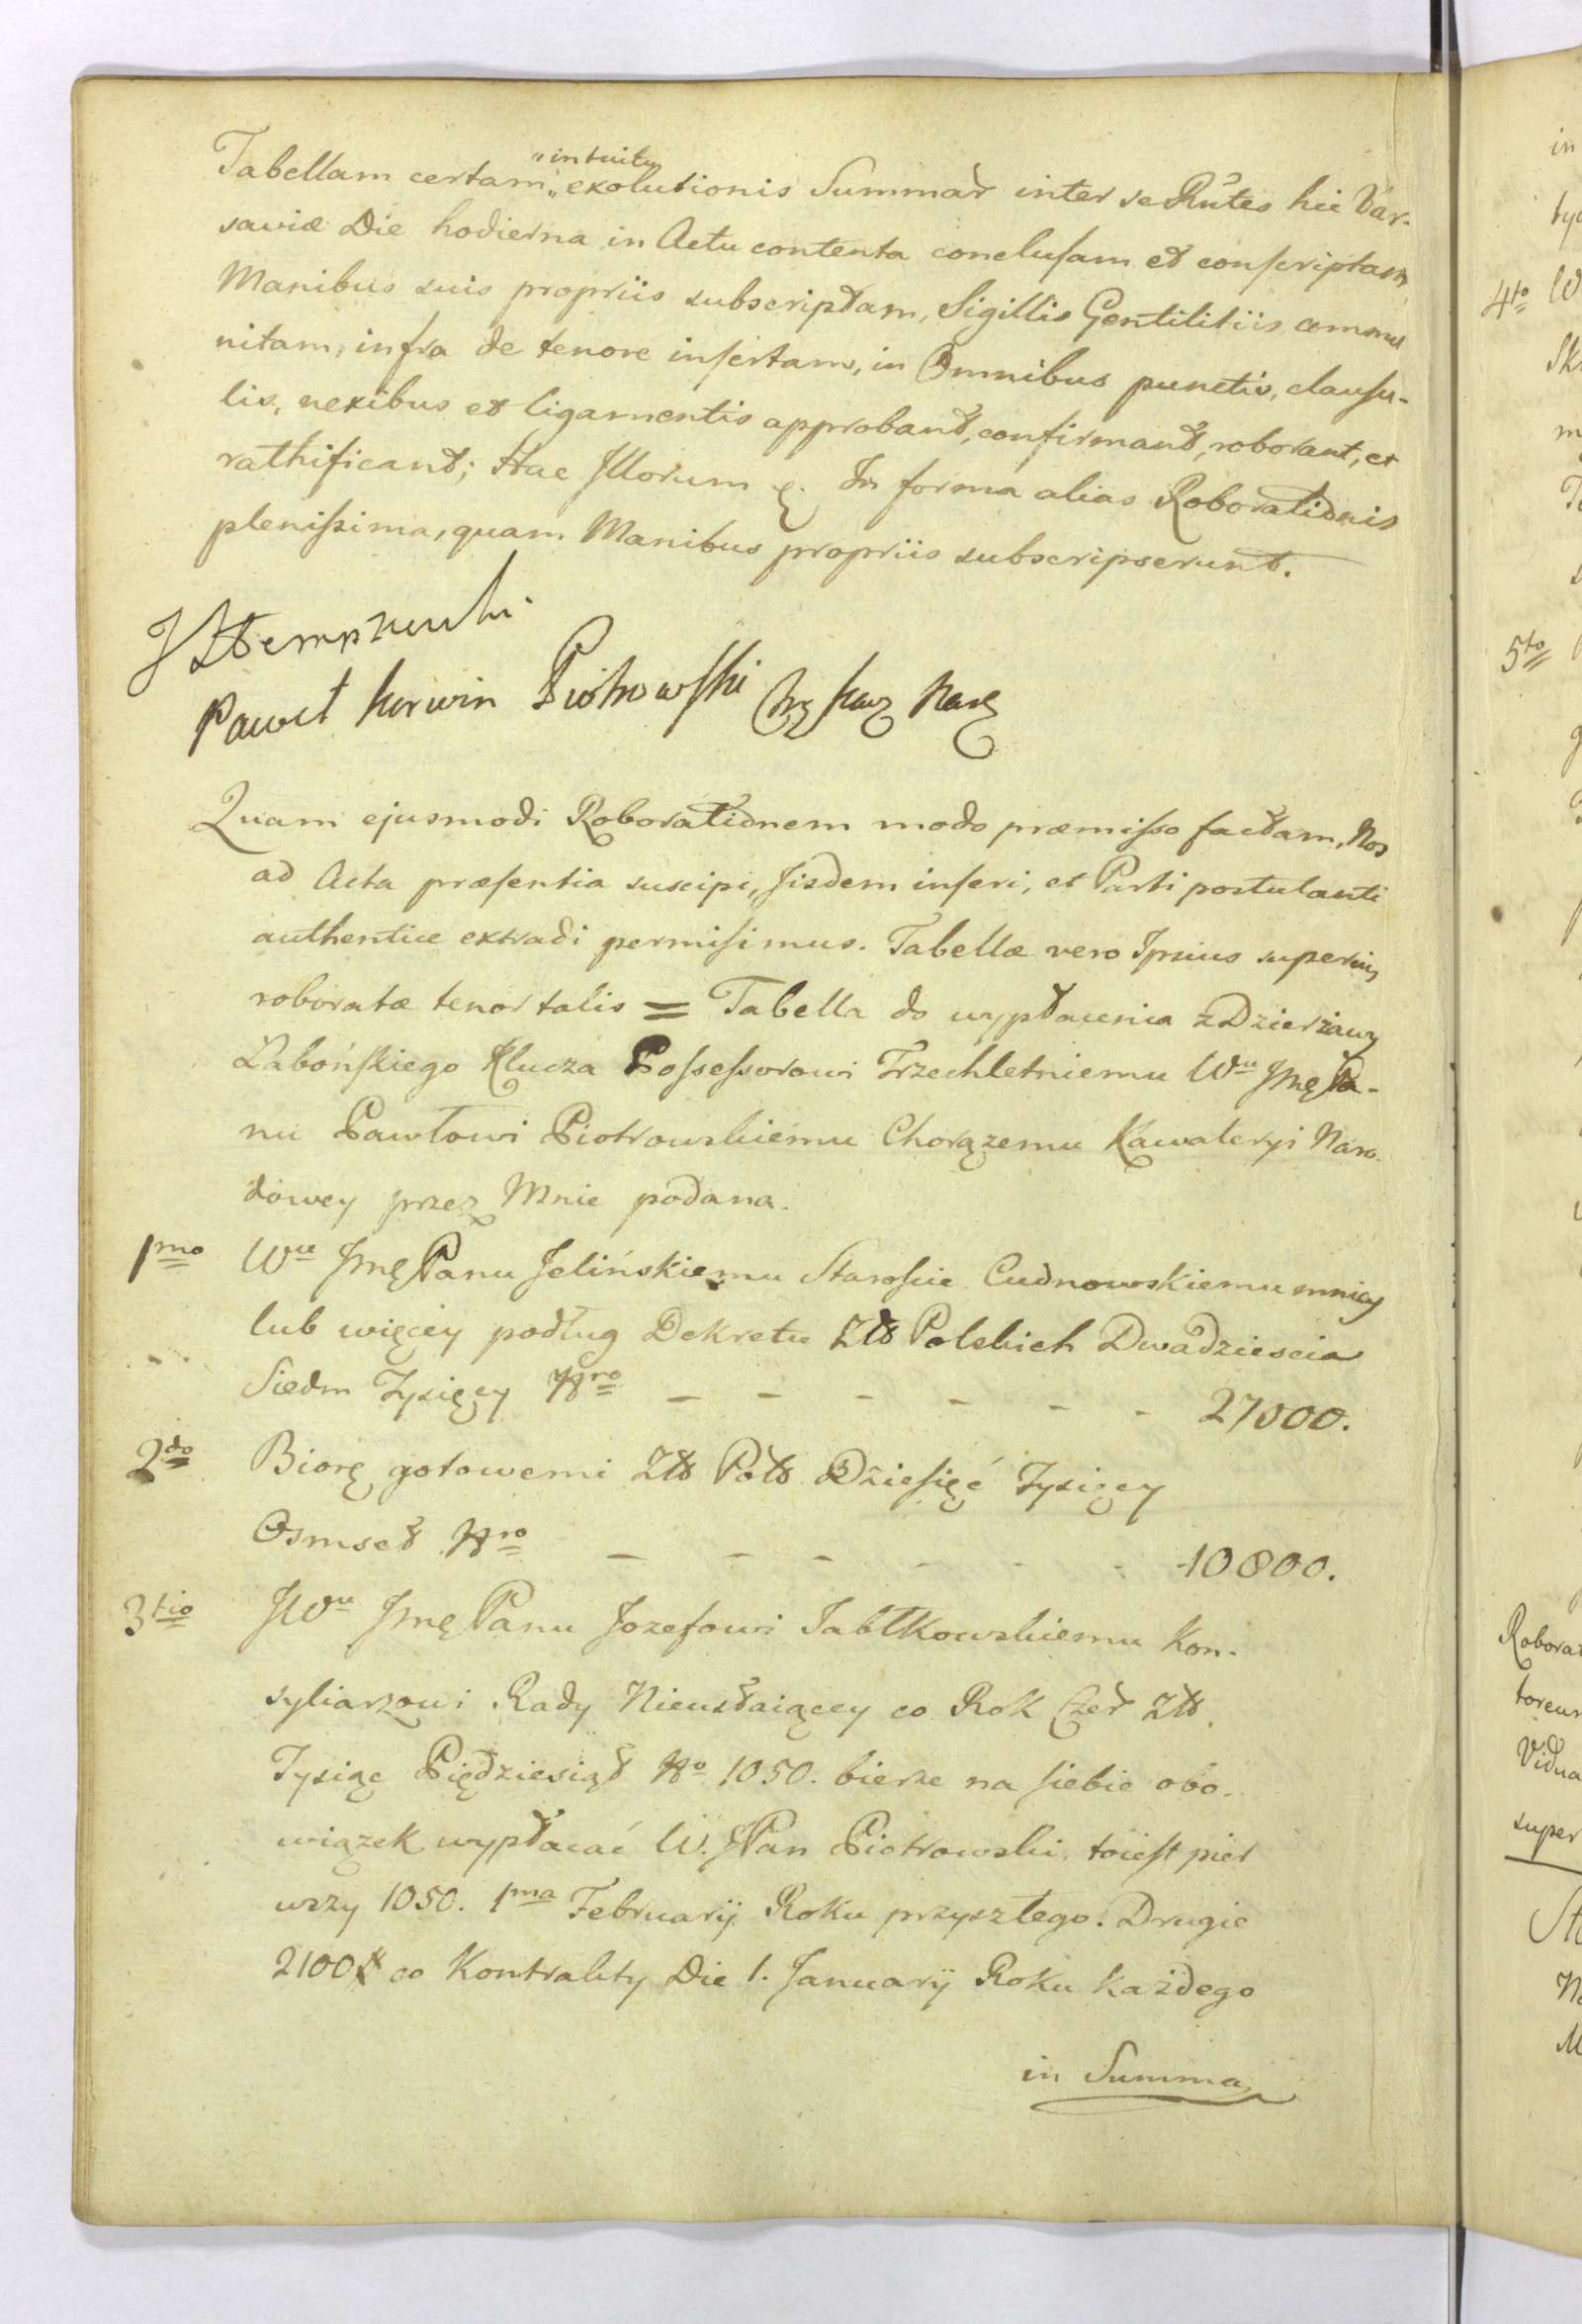 Tabellam certam „intuitu
„exolutionis Summar inter se Rñtes hic Var-
saviæ Die hodierna in Actu contenta conclusam et conscriptam
Manibus suis propriis subscriptam, Sigillis Gentilitiis commu
nitam, infra de tenore insertam, in Omnibus punctis, clausu-
lis, nexibus et ligamentis approbant, confirmant, roborant, et
rathificant; Hac Illorum In forma alias Roborationis
plenissima, quam Manibus propriis subscripserunt.
J Stempkowski
Paweł Korwin Piotrowski Chrą Kaw Nar
Quam ejusmodi Roborationem modo præmisso factam, Nos
ad Acta præsentia suscipi, Iisdem inseri, et Parti postulanti
authentice extradi permisimus. Tabellæ vero Ipsius superius
roboratæ tenor talis = Tabella do wypłacenia z Dzierżawy
Łabońskiego Klucza Possessorowi Trzechletniemu Wu Jmę Pa-
nu Pawłowi Piotrowskiemu Chorązemu Kawaleryi Naro-
dowey przez Mnie podana.
1mo Wu Jmę Panu Jelińskiemu Staroście Cudnowskiemu mniey
lub więcey podług Dekretu Złł Polskich Dwadziescia
Siedm Tysięcy Nro - - - - - - 27000.
2do Biorę gotowemi Złł Poll Dziesięć Tysięcy
Osmset Nro - - - - - - 10800.
3tio JWu Jmę Panu Jozefowi Jabłkowskiemu Kon-
syliarzowi Rady Nieustaiącey co Rok Czer Złł
Tysiąc Pięćdziesiąt No 1050. bierze na siebie obo-
wiązek wypłacać W. JPan Piotrowski, toiest pier
wszy 1050. 1ma Februarij Roku przyszłego. Drugie
2100 co Kontrakty Die 1. Januarij Roku każdego
in Summa
in
4to W
5to
Roborat
super